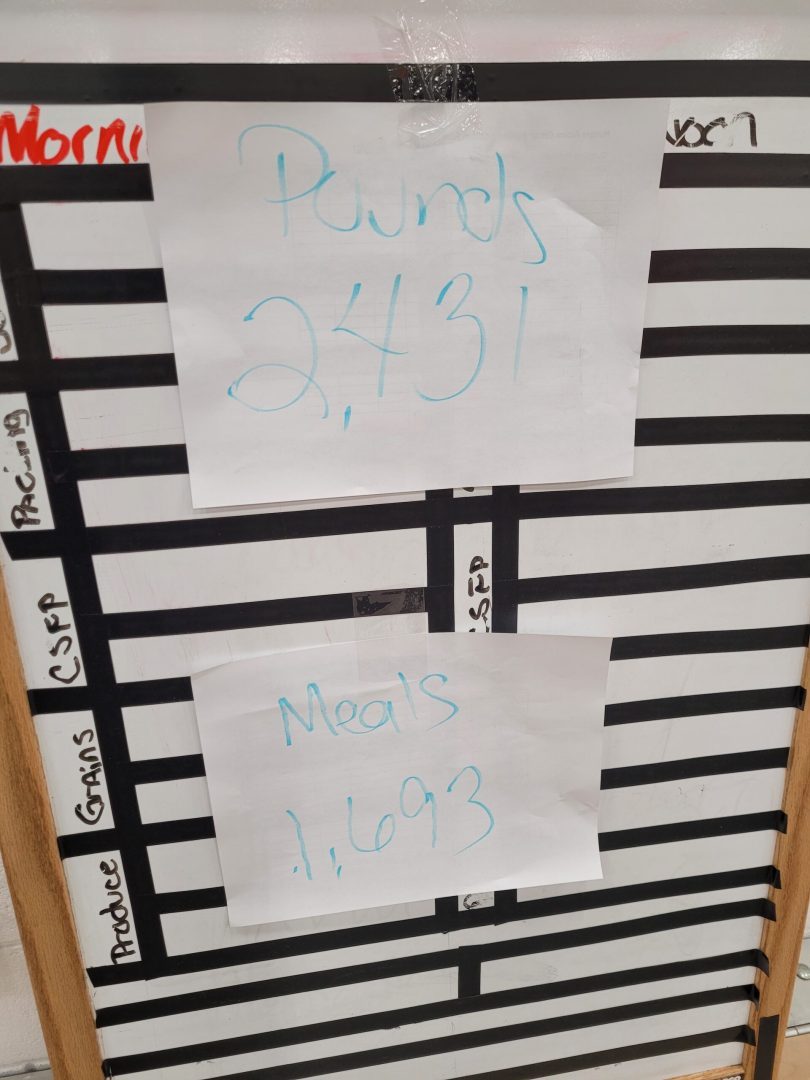 Morni
noon
Pounds
2,431
Meals
1,693
Pacing
CSFP
CSFP
Grains
Produce